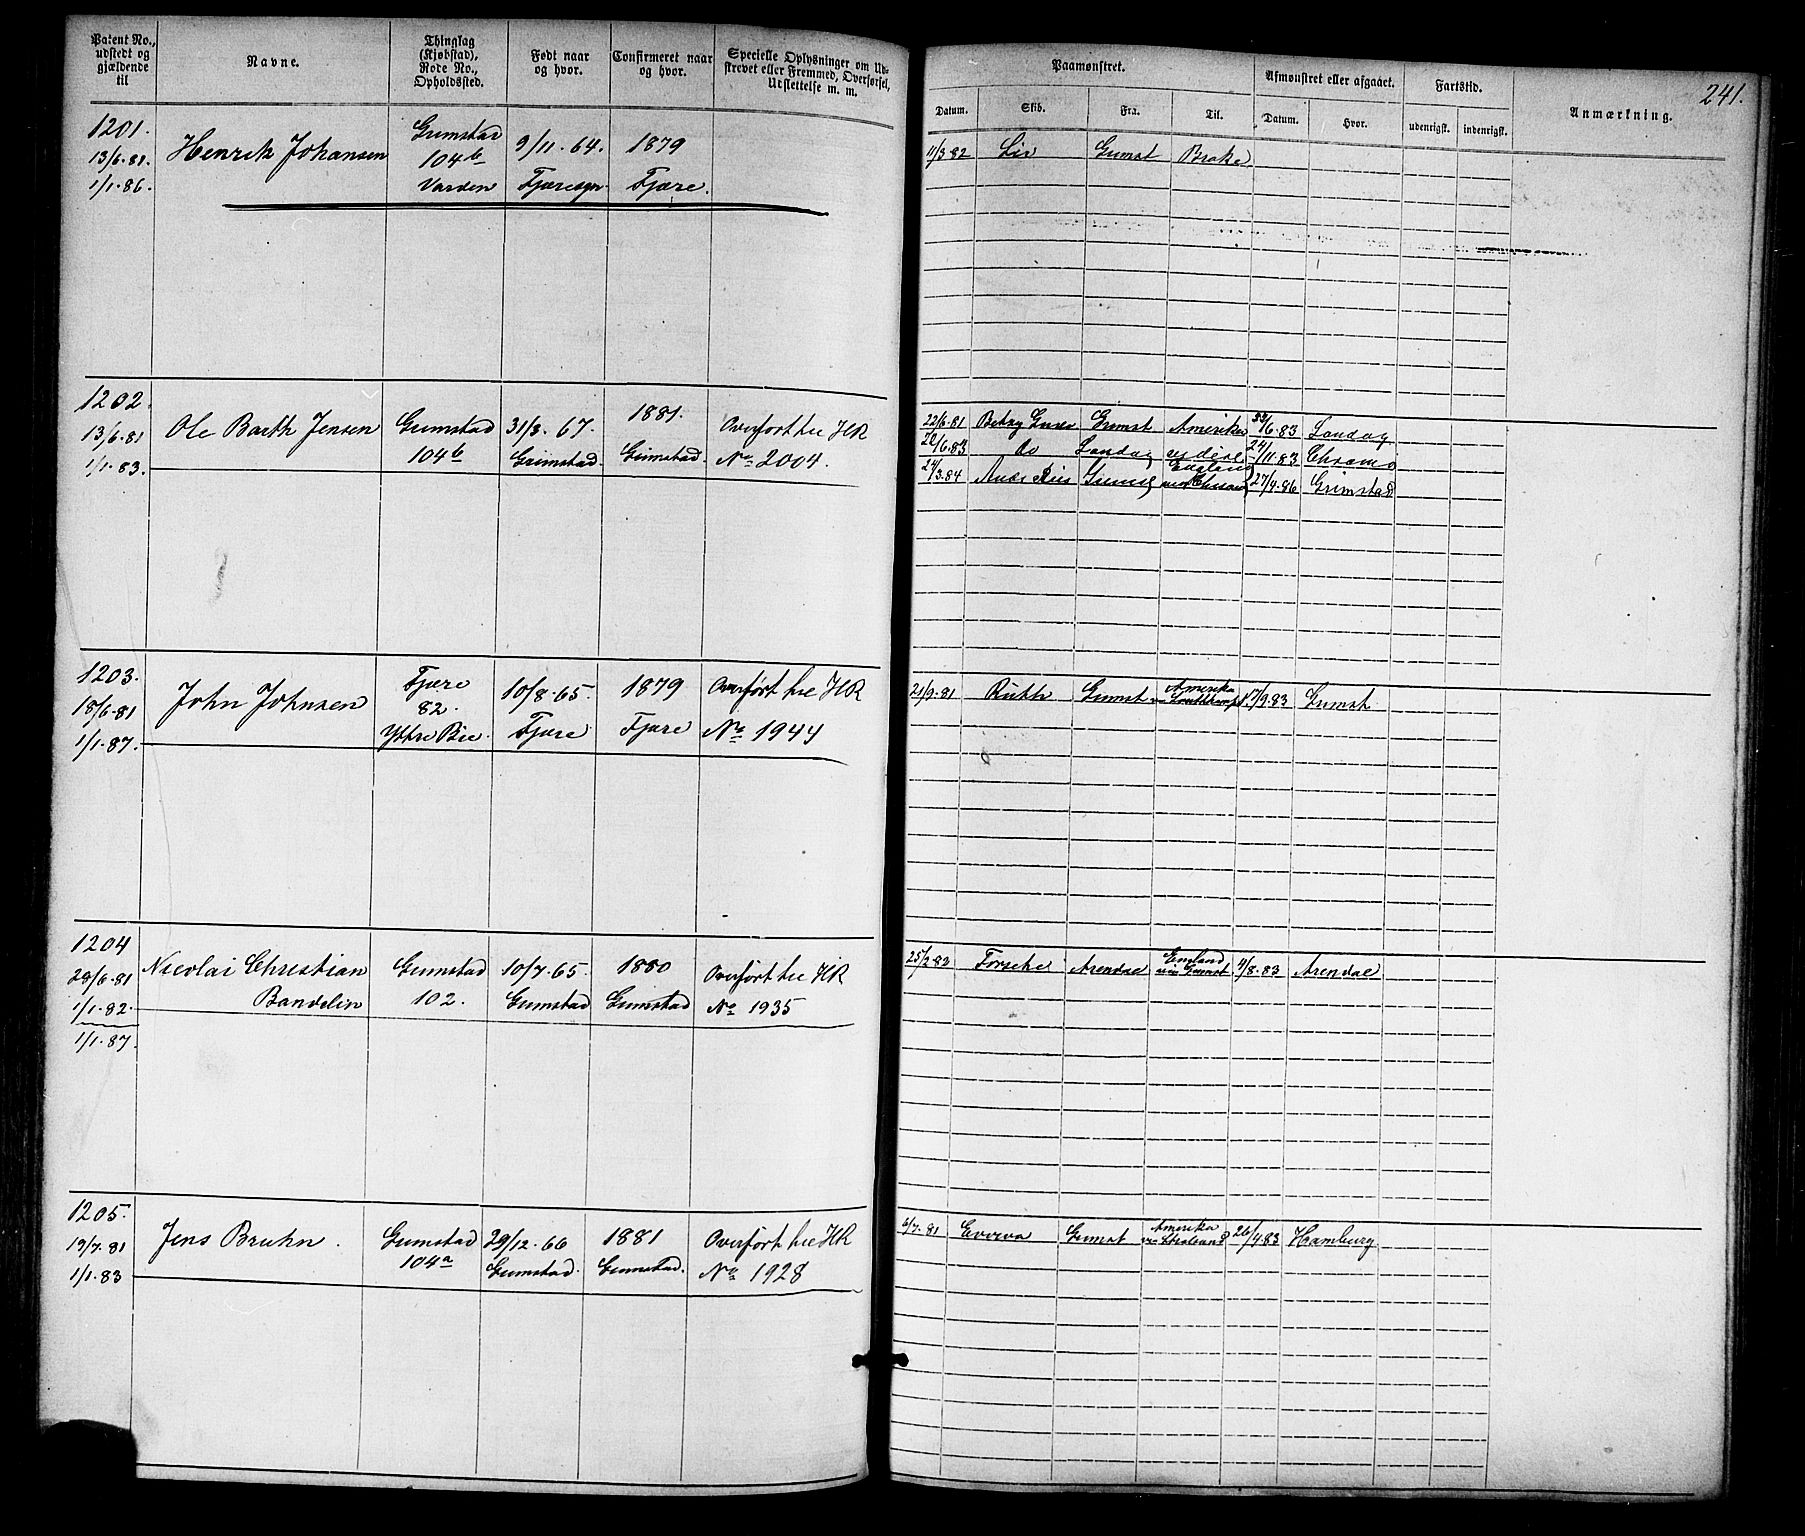 241.
Patent No., udstedt og gjældende til
Navne.
Thinglag (Kjøbstad), Rode No., Opholdssted.
Født naar og hvor.
Confirmeret naar og hvor.
Specielle Oplysninger om Udskrevet eller Fremmed, Overførsel, Udslettelse m. m.
Paamønstret.
Datum. Skib. Fra. Til.
Afmønstret eller afgaaet.
Datum. Hvor.
Fartstid.
udenrigsk. indenrigsk.
Anmærkning.
1201. Grimstad 9/11.64. 1879
13/6.81. Henrik Johansen 104b 11/3 82 Liv Grimst Brake
1/1.86. Varden Fjæresgn. Fjære.
1202. 1881.
13/6.81 Ole Barth Jensen Grimstad 31/3.67. Overført til HR 22/6.81 Betzy Grimst Amerika /6.83 Sandag
1/1.83. 104b Grimstad. Grimstad. No 2004. 20/6.83 do Sandag 24/11.83
24/3.84 Grimst England 27/4.86 Grimstad
1203. Fjære 10/8.65. 1879 Overført til HR 21/9.81 Ruth Grimst Amerika 17/9.83 Grimst
18/6.81 John Johnsen 82.
1/1.87. Ytre Bie. Fjære Fjære No 1944
1204
29/6.81 Nicolai Christian Grimstad 10/7.65. 1880 Overført til HR 25/2 83 Forsete Arendal via Grimst 4/8.83 Arendal
1/1.82. Bandelin 102. Grimstad Grimstad No 1935
1/1.87.
1205.
19/7.81 Jens Bruhn. Grimstad 29/12.66 1881 Overført til HR 6/7.81 Eviva Grimst Amerika 26/4.83 Hamburg
1/1.83 104a Grimstad. Grimstad. No 1928